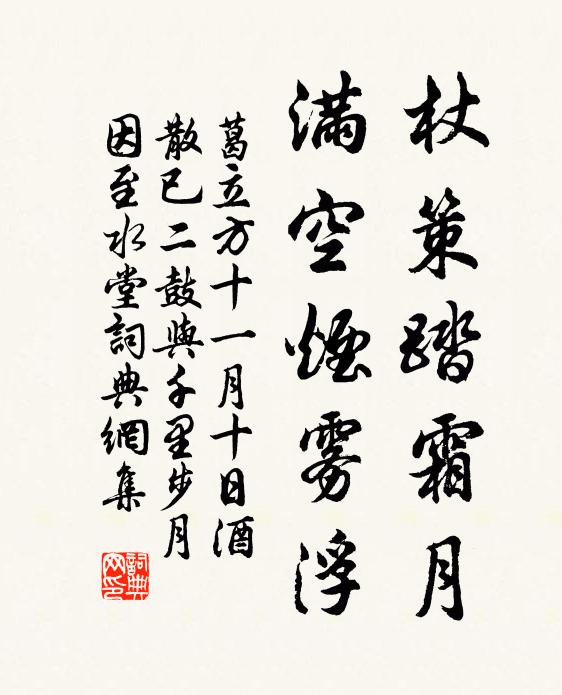 杖策踏霜月
满空煙雾浮
葛立方十一月十日酒
散已二鼓與千里步月
因至水堂詞典網集
詞典网印